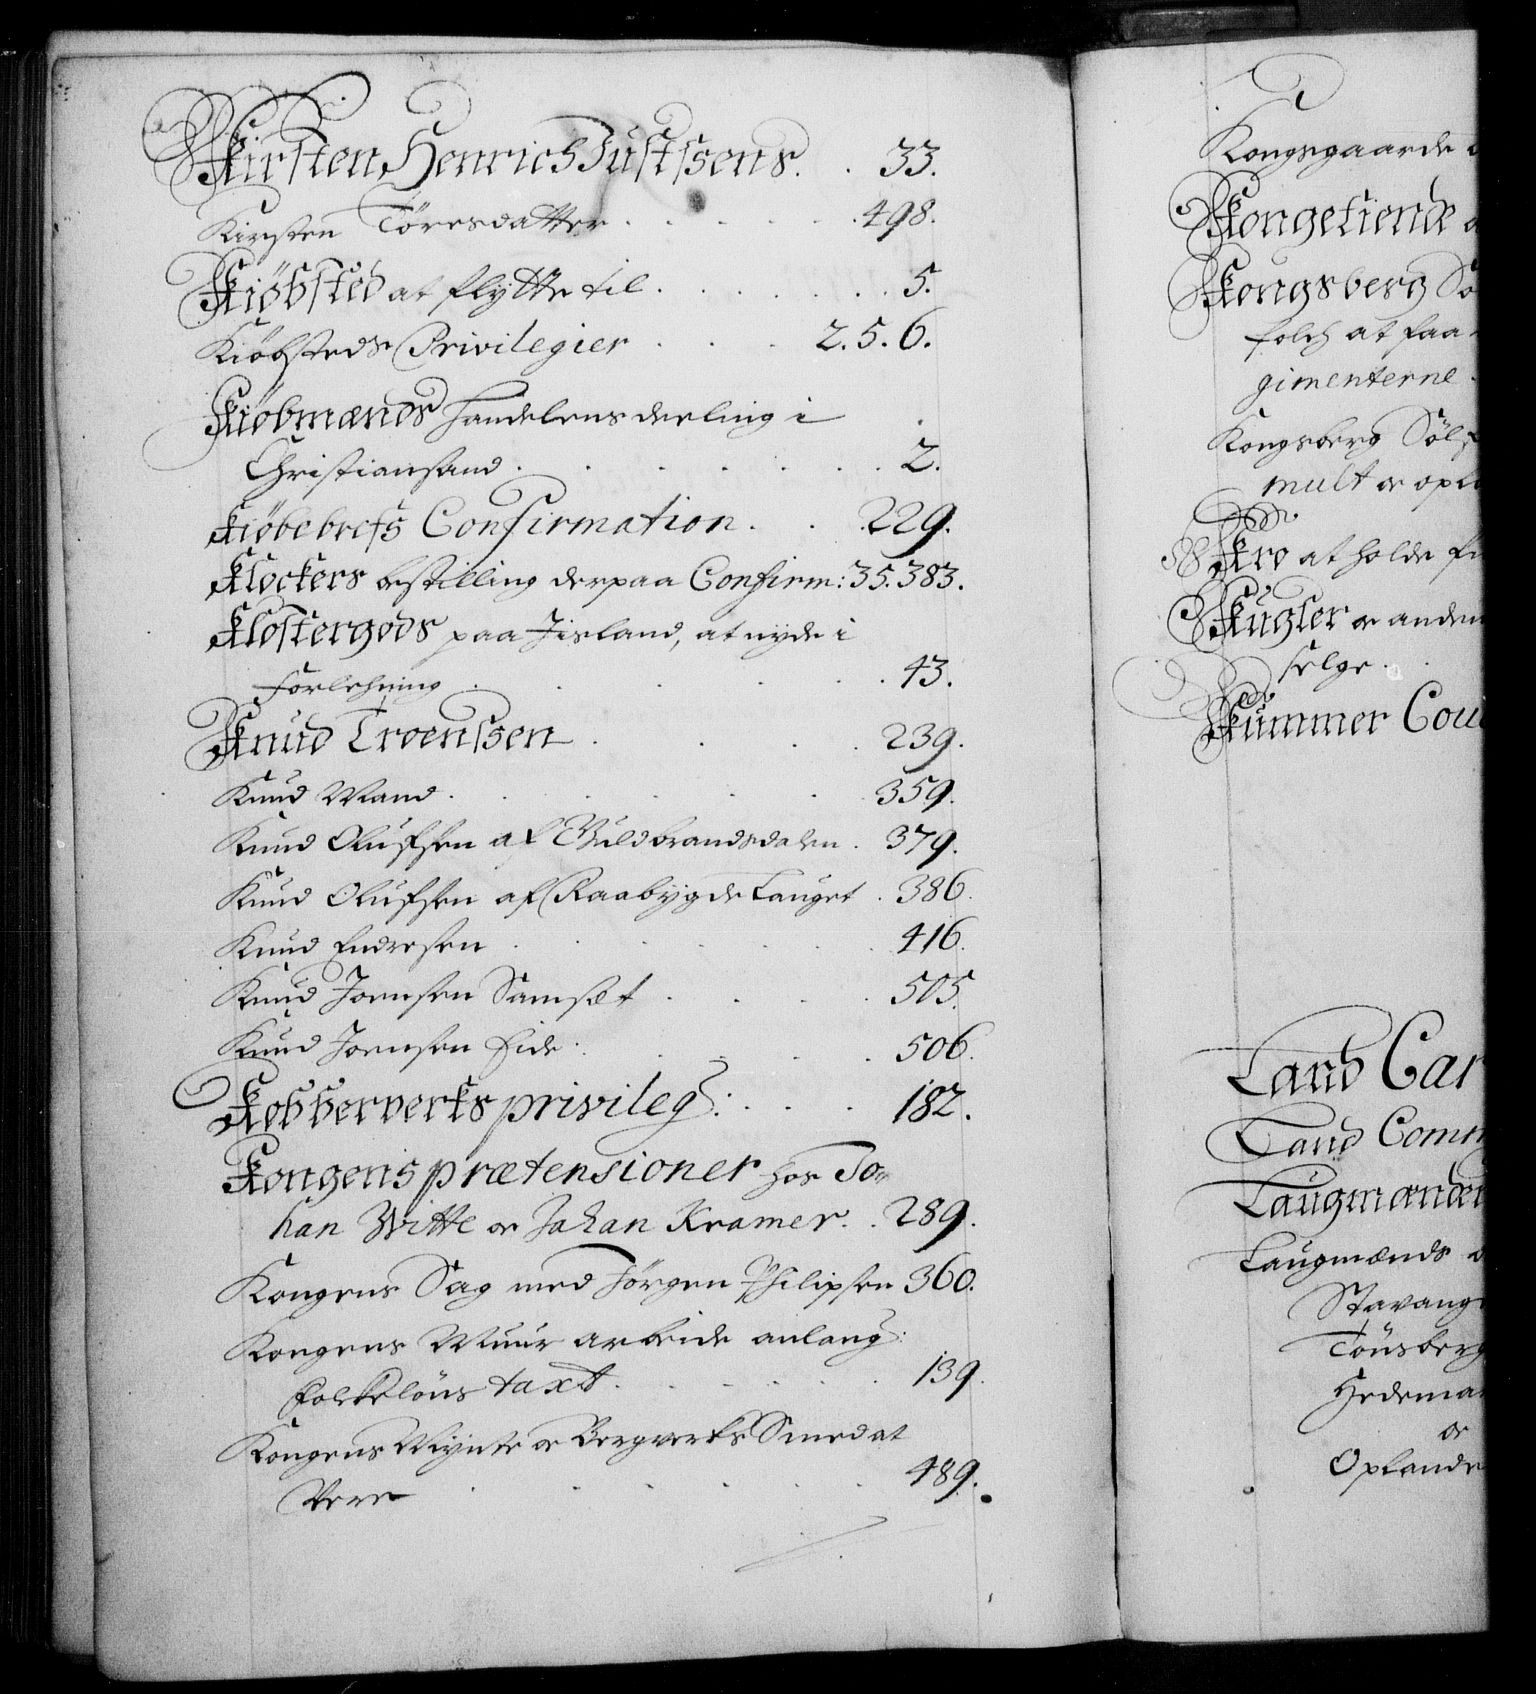 Kirsten Henrich Justsens. . 33.
Kirsten Töresdatter . . . . . 498.
Kiöbsted at flytte til . . . . . . 5.
Kiöbsteds Privilegier . . . 2. 5. 6.
Kiöbmænds handelens deeling i
Christiansand . . . . . . . 2.
Kiöbebrefs Confirmation . . . 229.
Klockers bestilling derpaa Confirm: 35. 383.
Klostergods paa Jisland, at nyde i
Forlehning . . . . . . 43.
Knud Troenssen . . . . . 239.
Knud Mand . . . . . . . 359.
Knud Olufsen af Guldbrandsdalen . 379.
Knud Olufsen af Raabygdelauget . 386.
Knud Endresen . . . . . . 416.
Knud Joensen Samset . . . . 505.
Knud Joensen Eide . . . . . 506.
Kobberverks privileg: . . . . 182.
Kongens prætensioner hos Jo-
han Witte oc Johan Kramer. . 289.
Kongens Sag med Jörgen Philipsen 360.
Kongens Muur arbeide anlang:
Folkelöns taxt . . . . . . 139.
Kongens Mynte oc Bergverks Smed at
Vere . . . . . . 489.
Kongsgaarde
Kongetiende
Kongsberg Sö
folch at faa
gimenterne
Kongsberg Söl
mult oc opl
Kro at holde fr
Kugler oc anden
selge .
Kummer Cou
Land Car
Land Comm
Laugmænden
Laugmænds
Stavang
Tönsberg
Hedema
oc
Oplande